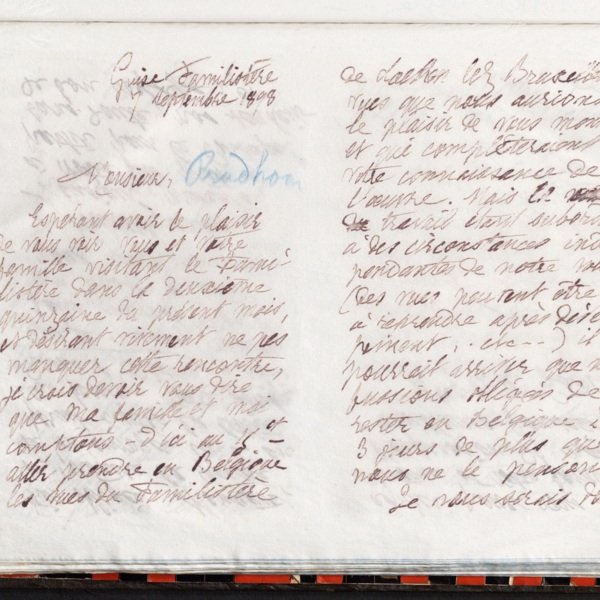 Guise Familistère
7 septembre 1898
Monsieur, Prudhon
Espérant avoir le plaisir
de vous voir vous et votre
famille visitant le Fami-
listère dans la deuxième
quinzaine de présent mois,
et désirant vivement ne pas
manquer cette rencontre,
je crois devoir vous dire
que ma famille et moi
comptons - d'ici au 15 et
aller prendre en Belgique
les vues du Familistère
de Laeken lez Bruxelles
vues que nous aurions
le plaisir de vous mon
et qui compléteraient
votre connaissance de
l'œuvre. Mais le
travail étant subor
à des circonstances indé
pendantes de notre
(des vues peuvent être
à reprendre après déve
pement, etc - -) il
pourrait arriver que n
fussions obligés de
rester en Belgique
3 jours de plus que
nous ne le pensons
Je vous serais do